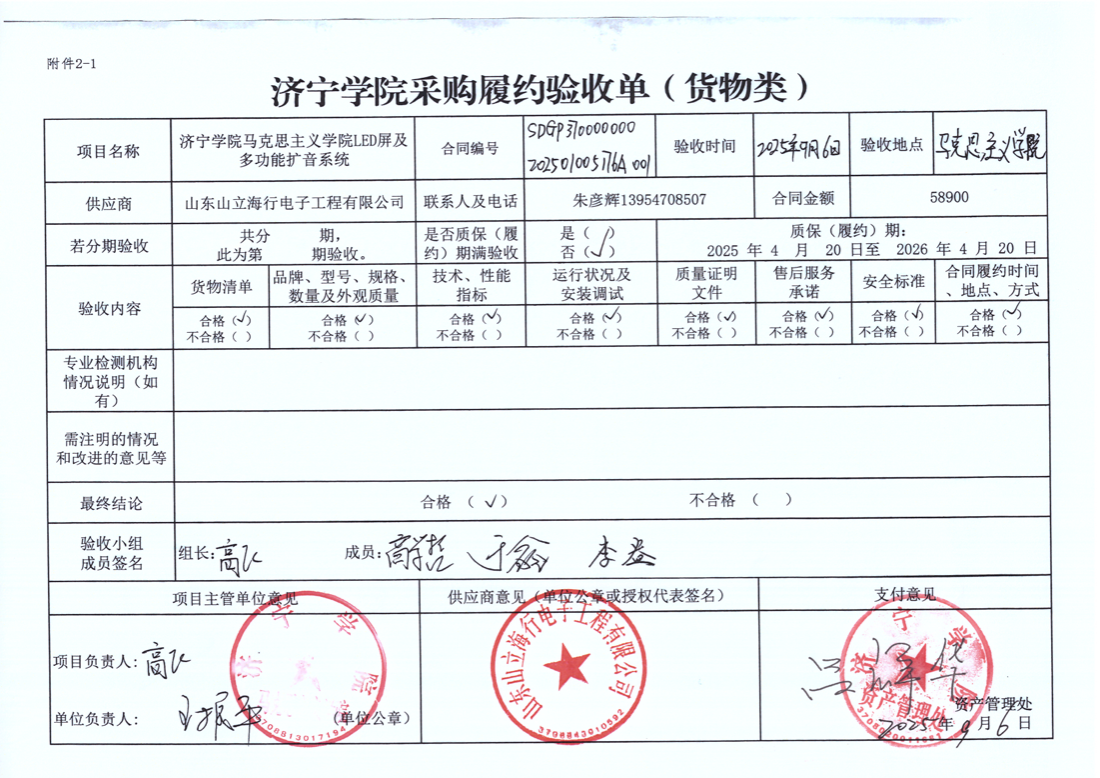 附件2-1
济宁学院采购履约验收单（货物类）
项目名称
济宁学院马克思主义学院LED屏及
多功能扩音系统
合同编号
SDGP370000000
202501005776A001
验收时间
2025年9月6日
验收地点
马克思主义学院
供应商
山东山立海行电子工程有限公司
联系人及电话
朱彦辉13954708507
合同金额
58900
若分期验收
共分 期，
此为第 期验收。
是否质保（履
约）期满验收
是（ ）
否（√）
质保（履约）期：
2025 年 4 月 20 日至 2026 年 4 月 20 日
验收内容
货物清单
品牌、型号、规格、
数量及外观质量
技术、性能
指标
运行状况及
安装调试
质量证明
文件
售后服务
承诺
安全标准
合同履约时间
、地点、方式
合格（√）
不合格（ ）
合格（√）
不合格（ ）
合格（√）
不合格（ ）
合格（√）
不合格（ ）
合格（√）
不合格（ ）
合格（√）
不合格（ ）
合格（√）
不合格（ ）
合格（√）
不合格（ ）
专业检测机构
情况说明（如
有）
需注明的情况
和改进的意见等
最终结论
合格 （√）
不合格 （ ）
验收小组
成员签名
组长：高飞
成员：
李益
项目主管单位意见
供应商意见（单位公章或授权代表签名）
支付意见
项目负责人：高飞
单位负责人：
（单位公章）
济宁学院
山东山立海行电子工程有限公司
3706843010592
济宁学院
资产管理处
资产管理处
2025年9月6日